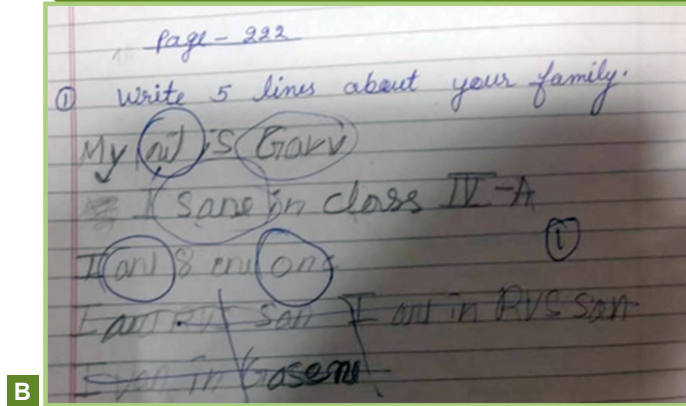 Page - 222
① Write 5 lines about your family.
My is Garv
I Sane in class IV-A
I am 8 ong
①
I am RVS San I am in RVS San
I in
B